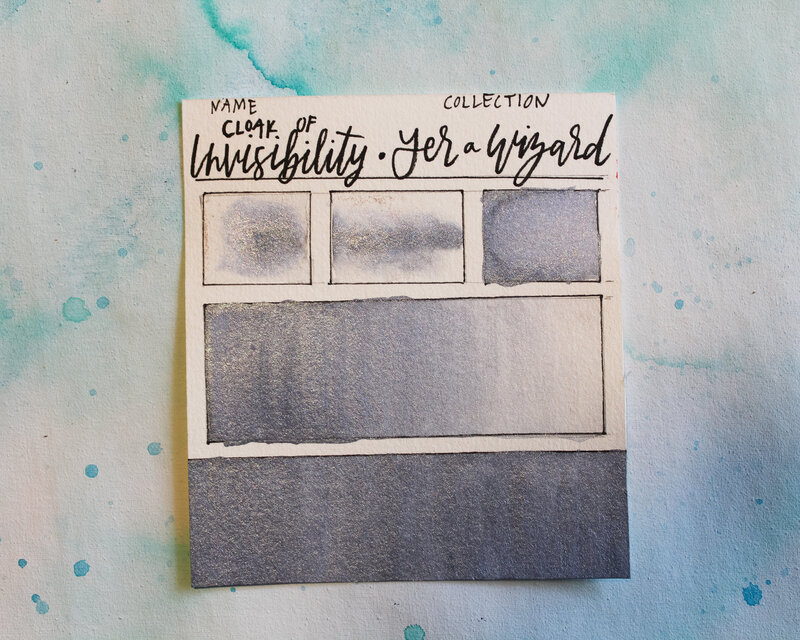 NAME COLLECTION
CLOAK OF
Invisibility • Yer a Wizard